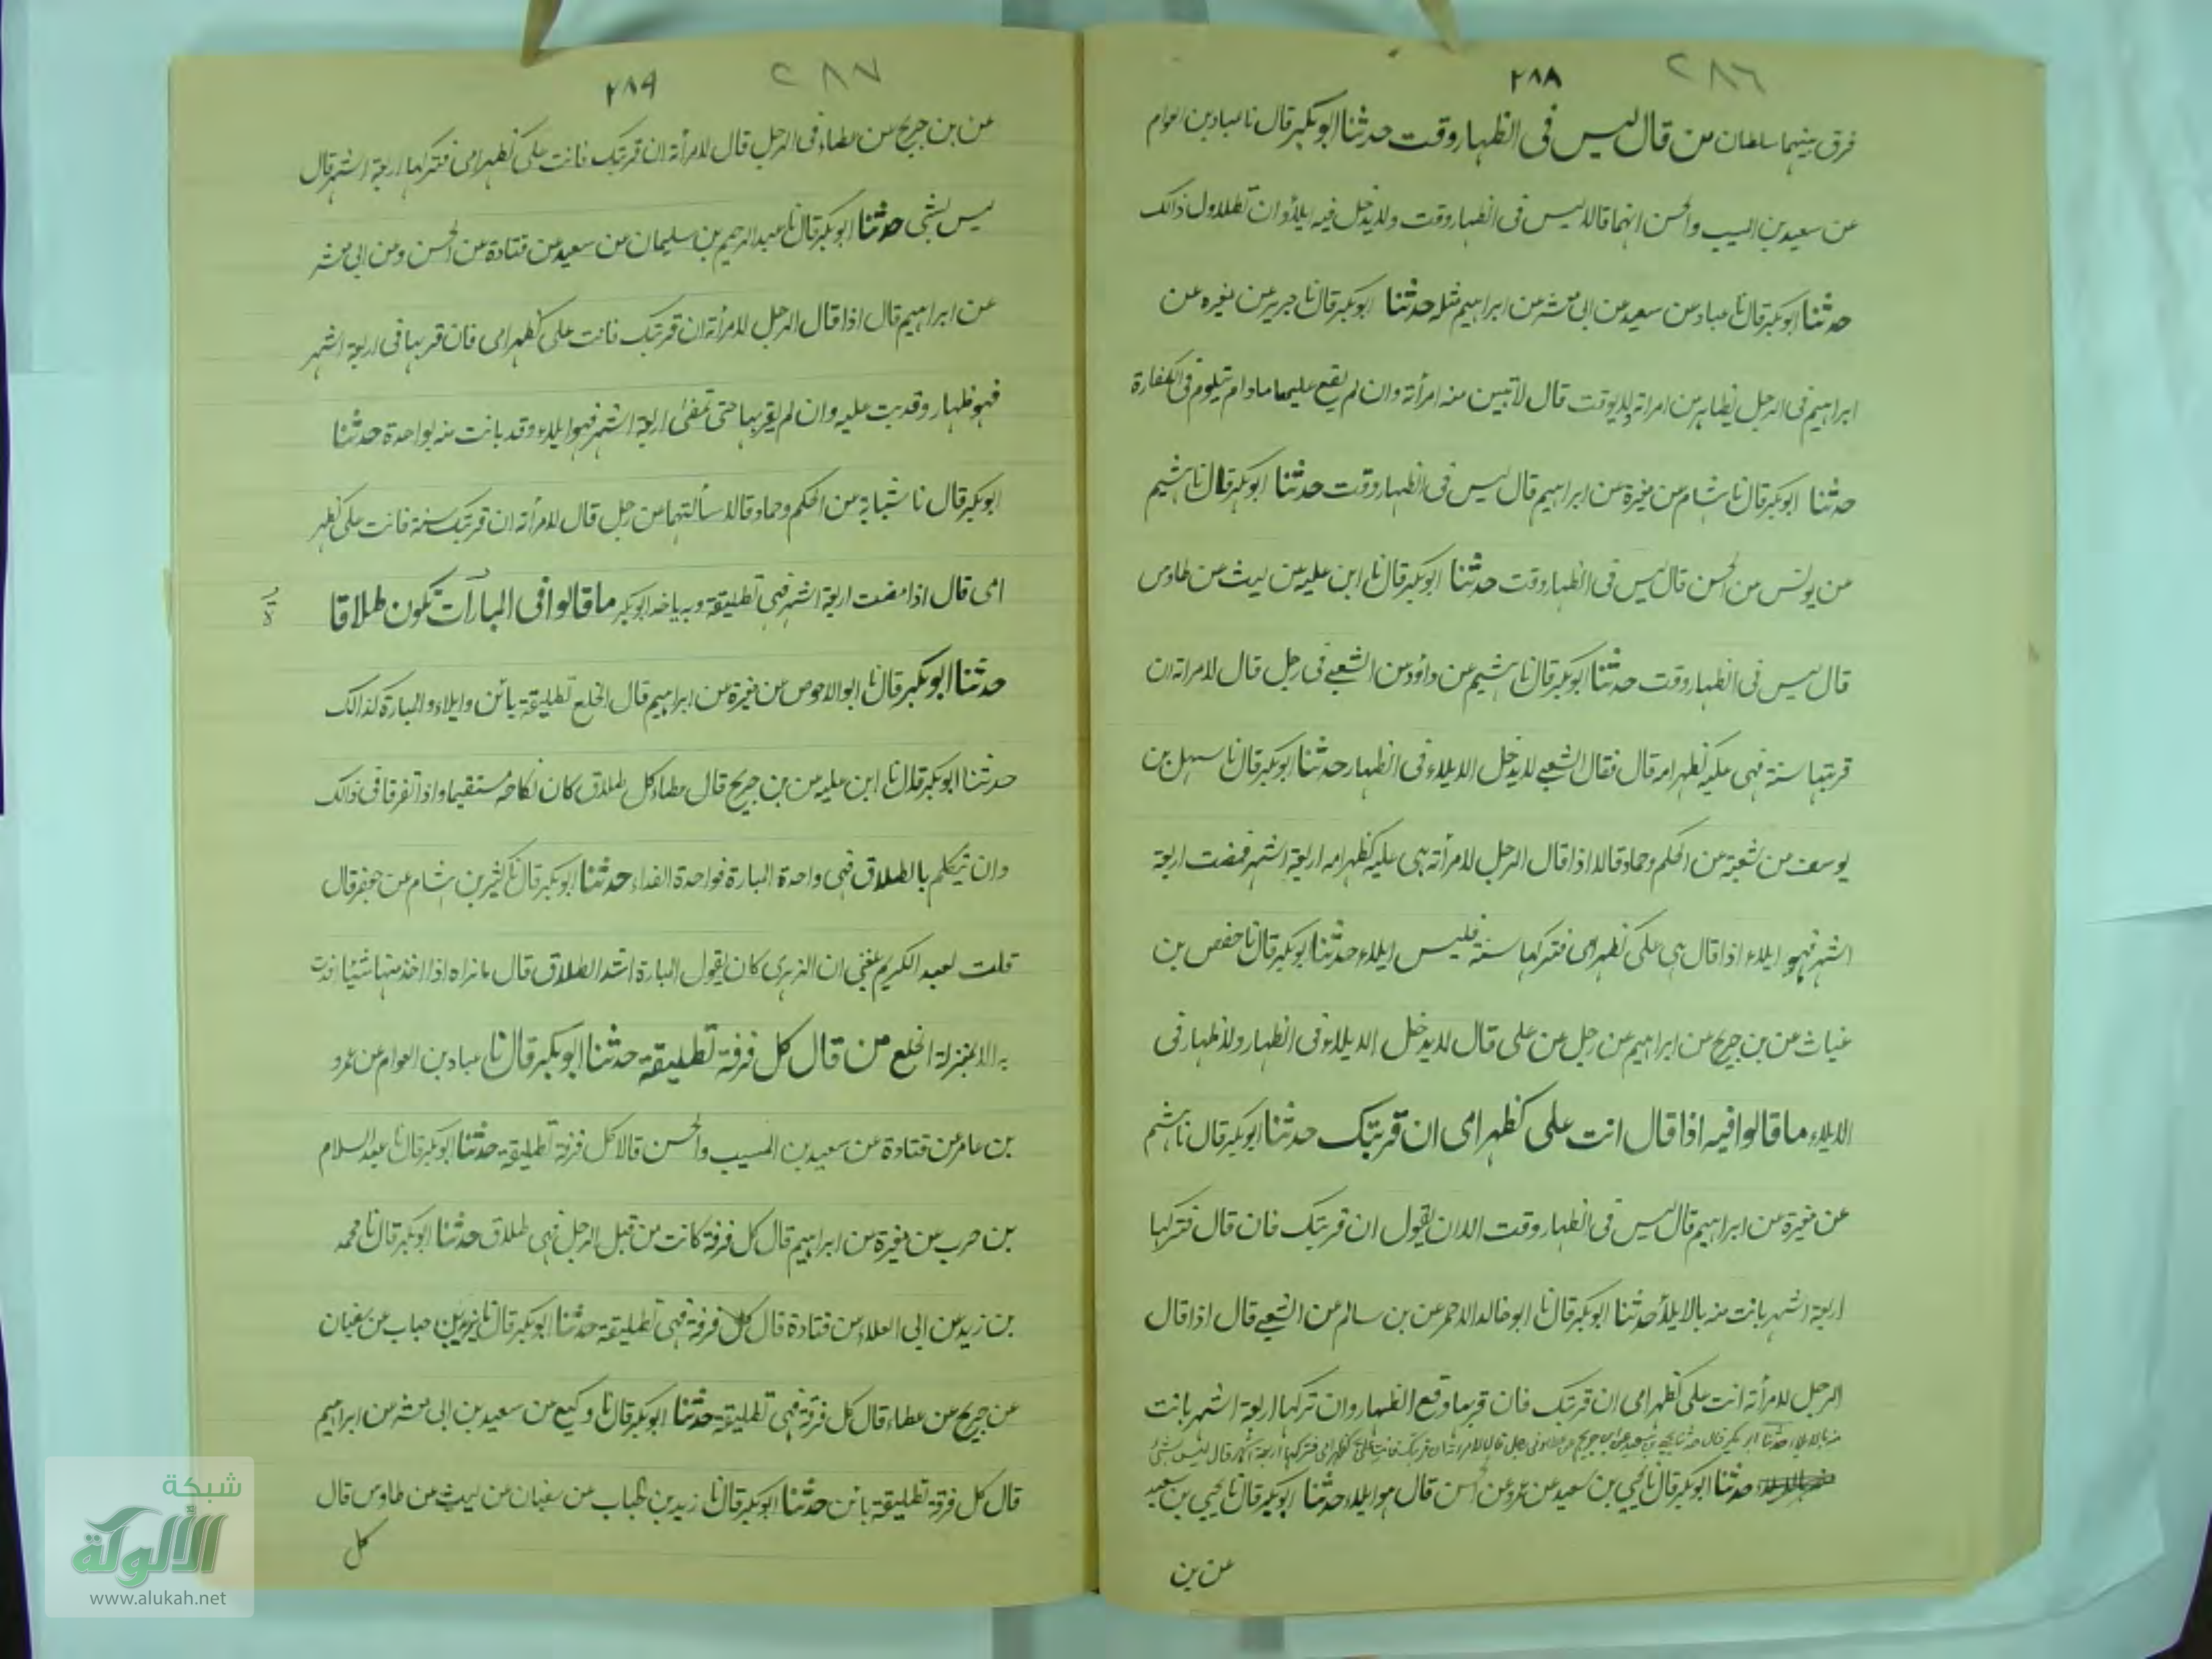 ٢٨٦
٢٨٨
فرق بينهما سلطان من قال ليس فى الظهار وقت حدثنا ابوبكر قال نا عباد بن العوام
عن سعيد بن المسيب والحسن انهما قالا ليس فى الظهار وقت ولا يدخل فيه ايلاء وان تطاول ذالك
حدثنا ابوبكر قال نا عباد عن سعيد عن ابى معشر عن ابراهيم مثله حدثنا ابوبكر قال نا جرير عن مغيره عن
ابراهيم فى الرجل يظاهر من امراته ولا يوقت قال لا تبين منه امرأته وان لم يقع عليها ما دام يتلوم فى الكفارة
حدثنا ابوبكر قال نا هشام عن مغيرة عن ابراهيم قال ليس فى الظهار وقت حدثنا ابوبكر قال نا هشيم
عن يونس عن الحسن قال ليس فى الظهار وقت حدثنا ابوبكر قال نا ابن عليه عن ليث عن طاوس
قال ليس فى الظهار وقت حدثنا ابوبكر قال نا هشيم عن داؤد عن الشعبى فى رجل قال لامراته ان
قربتها سنة فهى عليه كظهر امه قال فقال الشعبى لا يدخل الايلاء فى الظهار حدثنا ابوبكر قال نا سهل بن
يوسف عن شعبة عن الحكم وحماد قالا اذا قال الرجل لامرأته هى عليه كظهر امه اربعة اشهر فمضت اربعة
اشهر فهو ايلاء اذا قال هى على كظهر امى فتركها سنة فليس ايلاء حدثنا ابوبكر قال نا حفص بن
غياث عن بن جريج عن ابراهيم عن رجل عن على قال لا يدخل الايلاء فى الظهار ولا ظهار فى
الايلاء ما قالوا فيه اذا قال انت على كظهر امى ان قربتك حدثنا ابوبكر قال نا هشيم
عن مغيرة عن ابراهيم قال ليس فى الظهار وقت الا ان يقول ان قربتك فان قال فتركها
اربعة اشهر بانت منه بالايلاء حدثنا ابوبكر قال نا ابوخالد الاحمر عن بن سالم عن الشعبى قال اذا قال
الرجل لامرأته انت على كظهر امى ان قربتك فان قربها وقع الظهار وان تركها اربعة اشهر بانت
منه بالايلاء حدثنا ابوبكر قال حدثنا يحيى بن سعيد عن ابن جريج عن عطاء فى رجل قال لامرأته ان قربتك فانت على كظهر امى فتركها اربعة اشهر قال ليس بشئ
حدثنا ابوبكر قال نا يحيى بن سعيد عن عمرو عن الحسن قال هو ايلاء حدثنا ابوبكر قال نا يحيى بن سعيد
عن بن
٢٨٧
٢٨٩
عن بن جريج عن عطاء فى الرجل قال لامرأته ان قربتك فانت على كظهر امى فتركها اربعة اشهر قال
ليس بشئ حدثنا ابوبكر قال نا عبد الرحيم بن سليمان عن سعيد عن قتادة عن الحسن وعن ابى معشر
عن ابراهيم قال اذا قال الرجل لامرأته ان قربتك فانت على كظهر امى فان قربها فى اربعة اشهر
فهو ظهار وقد بت عليه وان لم يقربها حتى تمضى اربعة اشهر فهو ايلاء وقد بانت منه بواحدة حدثنا
ابوبكر قال نا شبابة عن الحكم وحماد قالا سألتهما عن رجل قال لامرأته ان قربتك سنة فانت على كظهر
امى قال اذا مضت اربعة اشهر فهى تطليقة وبه ياخذ ابوبكر ما قالوا فى المبارآت تكون طلاقا
حدثنا ابوبكر قال نا ابوالاحوص عن مغيرة عن ابراهيم قال الخلع تطليقة بائن وايلاء والمبارة كذالك
حدثنا ابوبكر قال نا ابن عليه عن بن جريج قال عطاء كل طلاق كان نكاحه مستقيما واذا تفرقا فى ذالك
وان تيكلم بالطلاق فهى واحدة المبارة فواحدة الفداء حدثنا ابوبكر قال نا كثير بن هشام عن جعفر قال
قلت لعبد الكريم بلغنى ان الزهرى كان يقول المبارة اشد الطلاق قال ما نراه اذا اخذ منها شيئا افدت
به الا بمنزلة الخلع من قال كل فرقة تطليقة حدثنا ابوبكر قال نا عباد بن العوام عن عمرو
بن عامر عن قتادة عن سعيد بن المسيب والحسن قالا كل فرقة تطليقة حدثنا ابوبكر قال نا عبد السلام
بن حرب عن مغيرة عن ابراهيم قال كل فرقة كانت من قبل الرجل فهى طلاق حدثنا ابوبكر قال نا محمد
بن زيد عن ابى العلاء عن قتادة قال كل فرقة فهى تطليقة حدثنا ابوبكر قال نا زيد بن حباب عن سفيان
عن جريج عن عطاء قال كل فرقة فهى تطليقة حدثنا ابوبكر قال نا وكيع عن سعيد بن ابى معشر عن ابراهيم
قال كل فرقة تطليقة بائن حدثنا ابوبكر قال نا زيد بن الحباب عن سفيان عن ليث عن طاوس قال
كل
شبكة
الألوكة
www.alukah.net